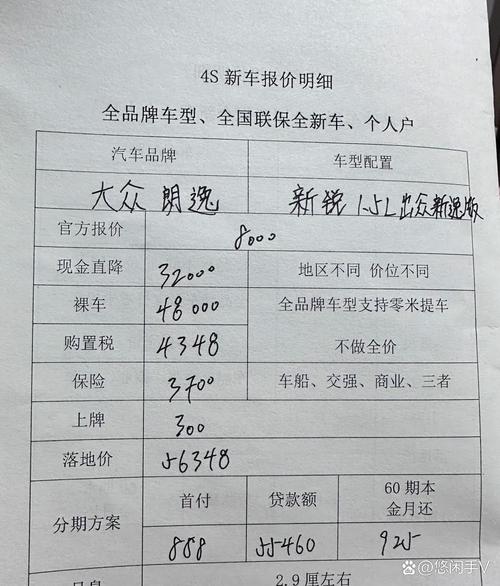 4S 新车报价明细
全品牌车型、全国联保全新车、个人户
汽车品牌 车型配置
大众 朗逸 新锐 1.5L 出众新逸版
官方报价 8000
现金直降 32000 地区不同 价位不同
裸车 48000 全品牌车型支持零米提车
购置税 4348 不做全价
保险 3700 车船、交强、商业、三者
上牌 300
落地价 56348
分期方案 首付 贷款额 60 期本金月还
888 55460 925
月息 2.9 厘左右
百度 @悠闲手V